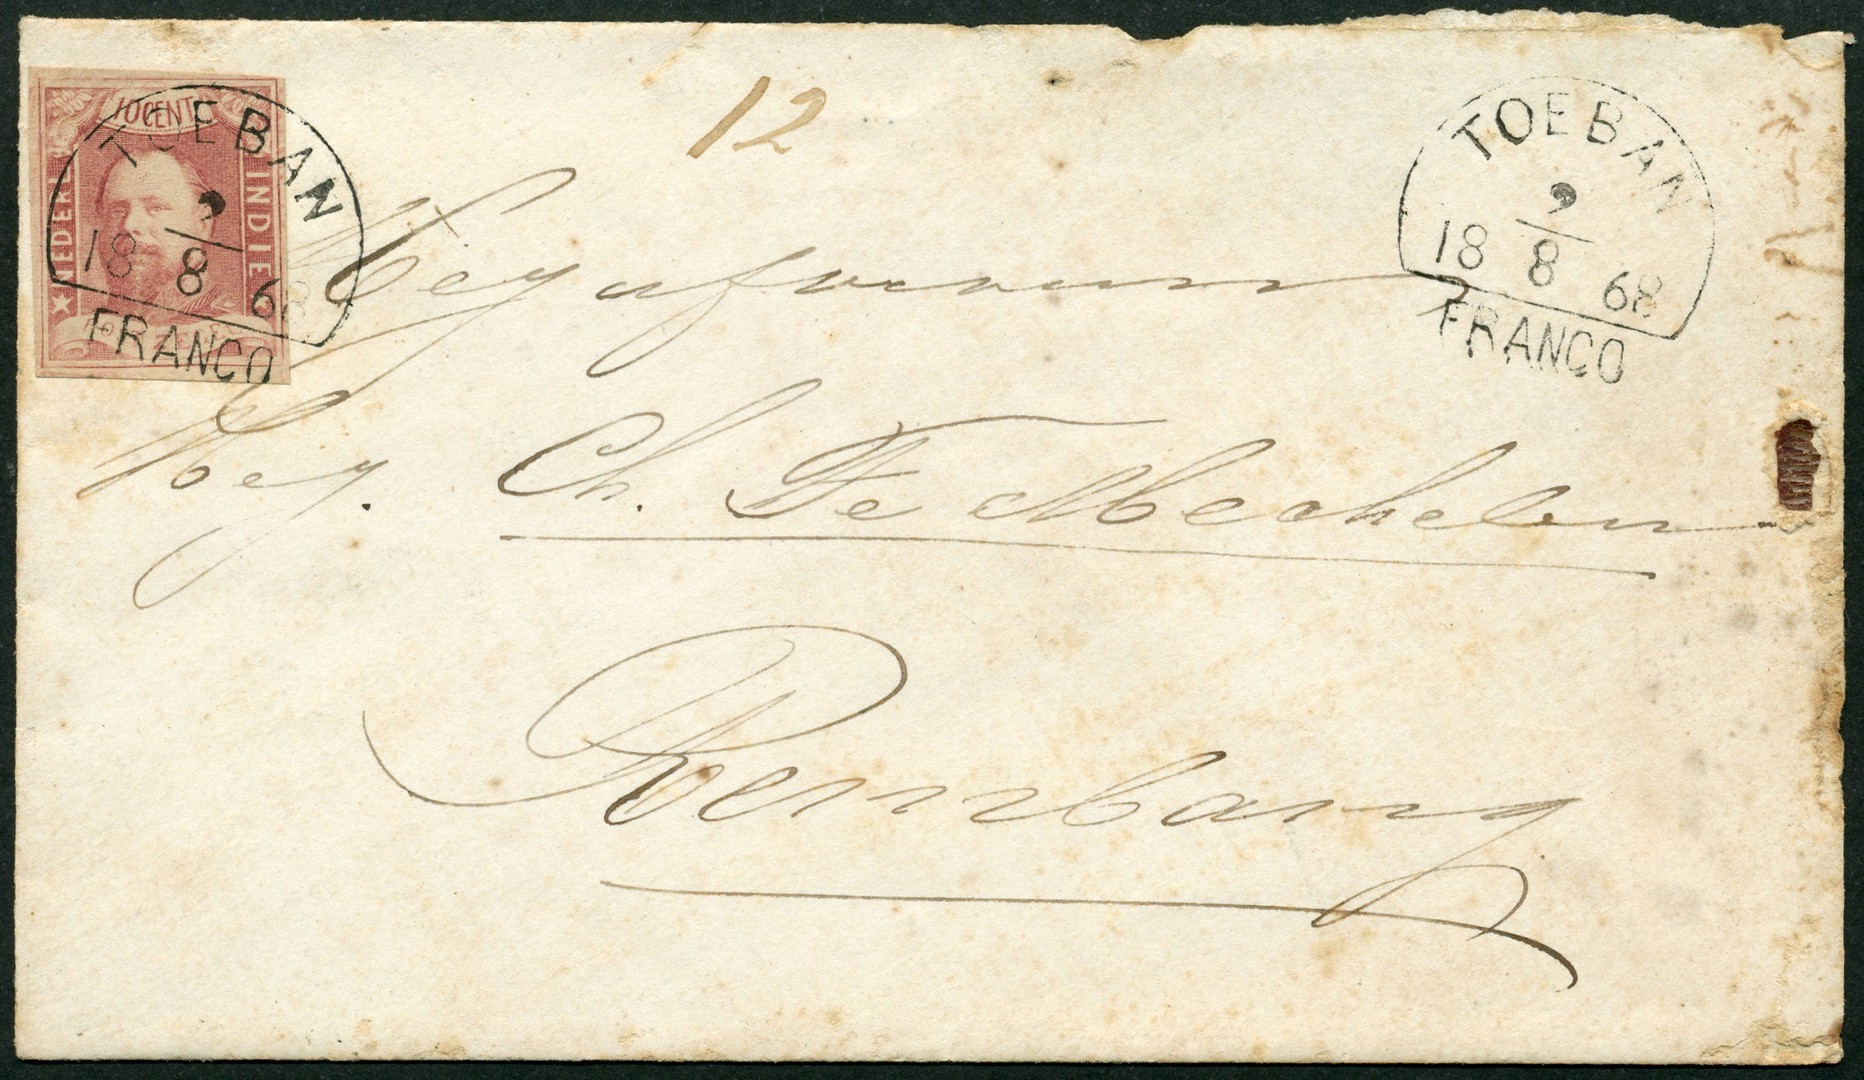 10 CENT
NEDERL INDIE
TOEBAN
9
18 8 68
FRANCO
12
TOEBAN
9
18 8 68
FRANCO
Mejufvrouw
Mej. Ch. Te Mechelen
Rembang